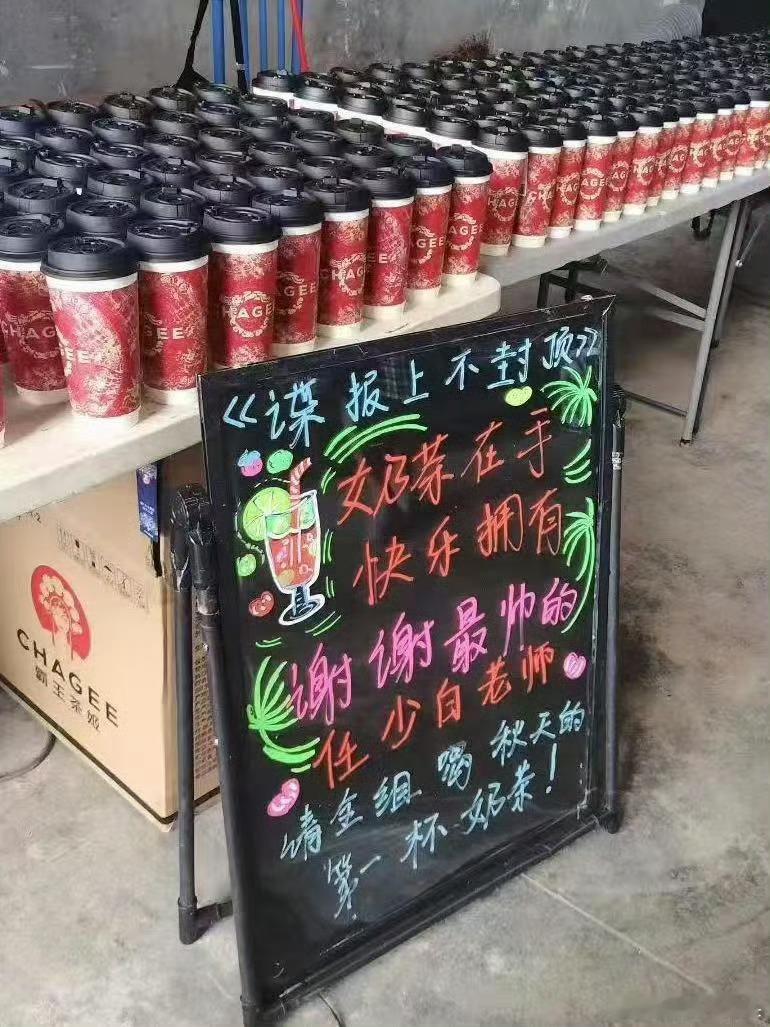 CHAGEE
CHAGEE
CHAGEE
CHAGEE
CHAGEE
<<谍报上不封顶>>
奶茶在手
快乐拥有
谢谢最帅的
任少白老师
请全组喝秋天的
第一杯奶茶!
CHAGEE
霸王茶姬